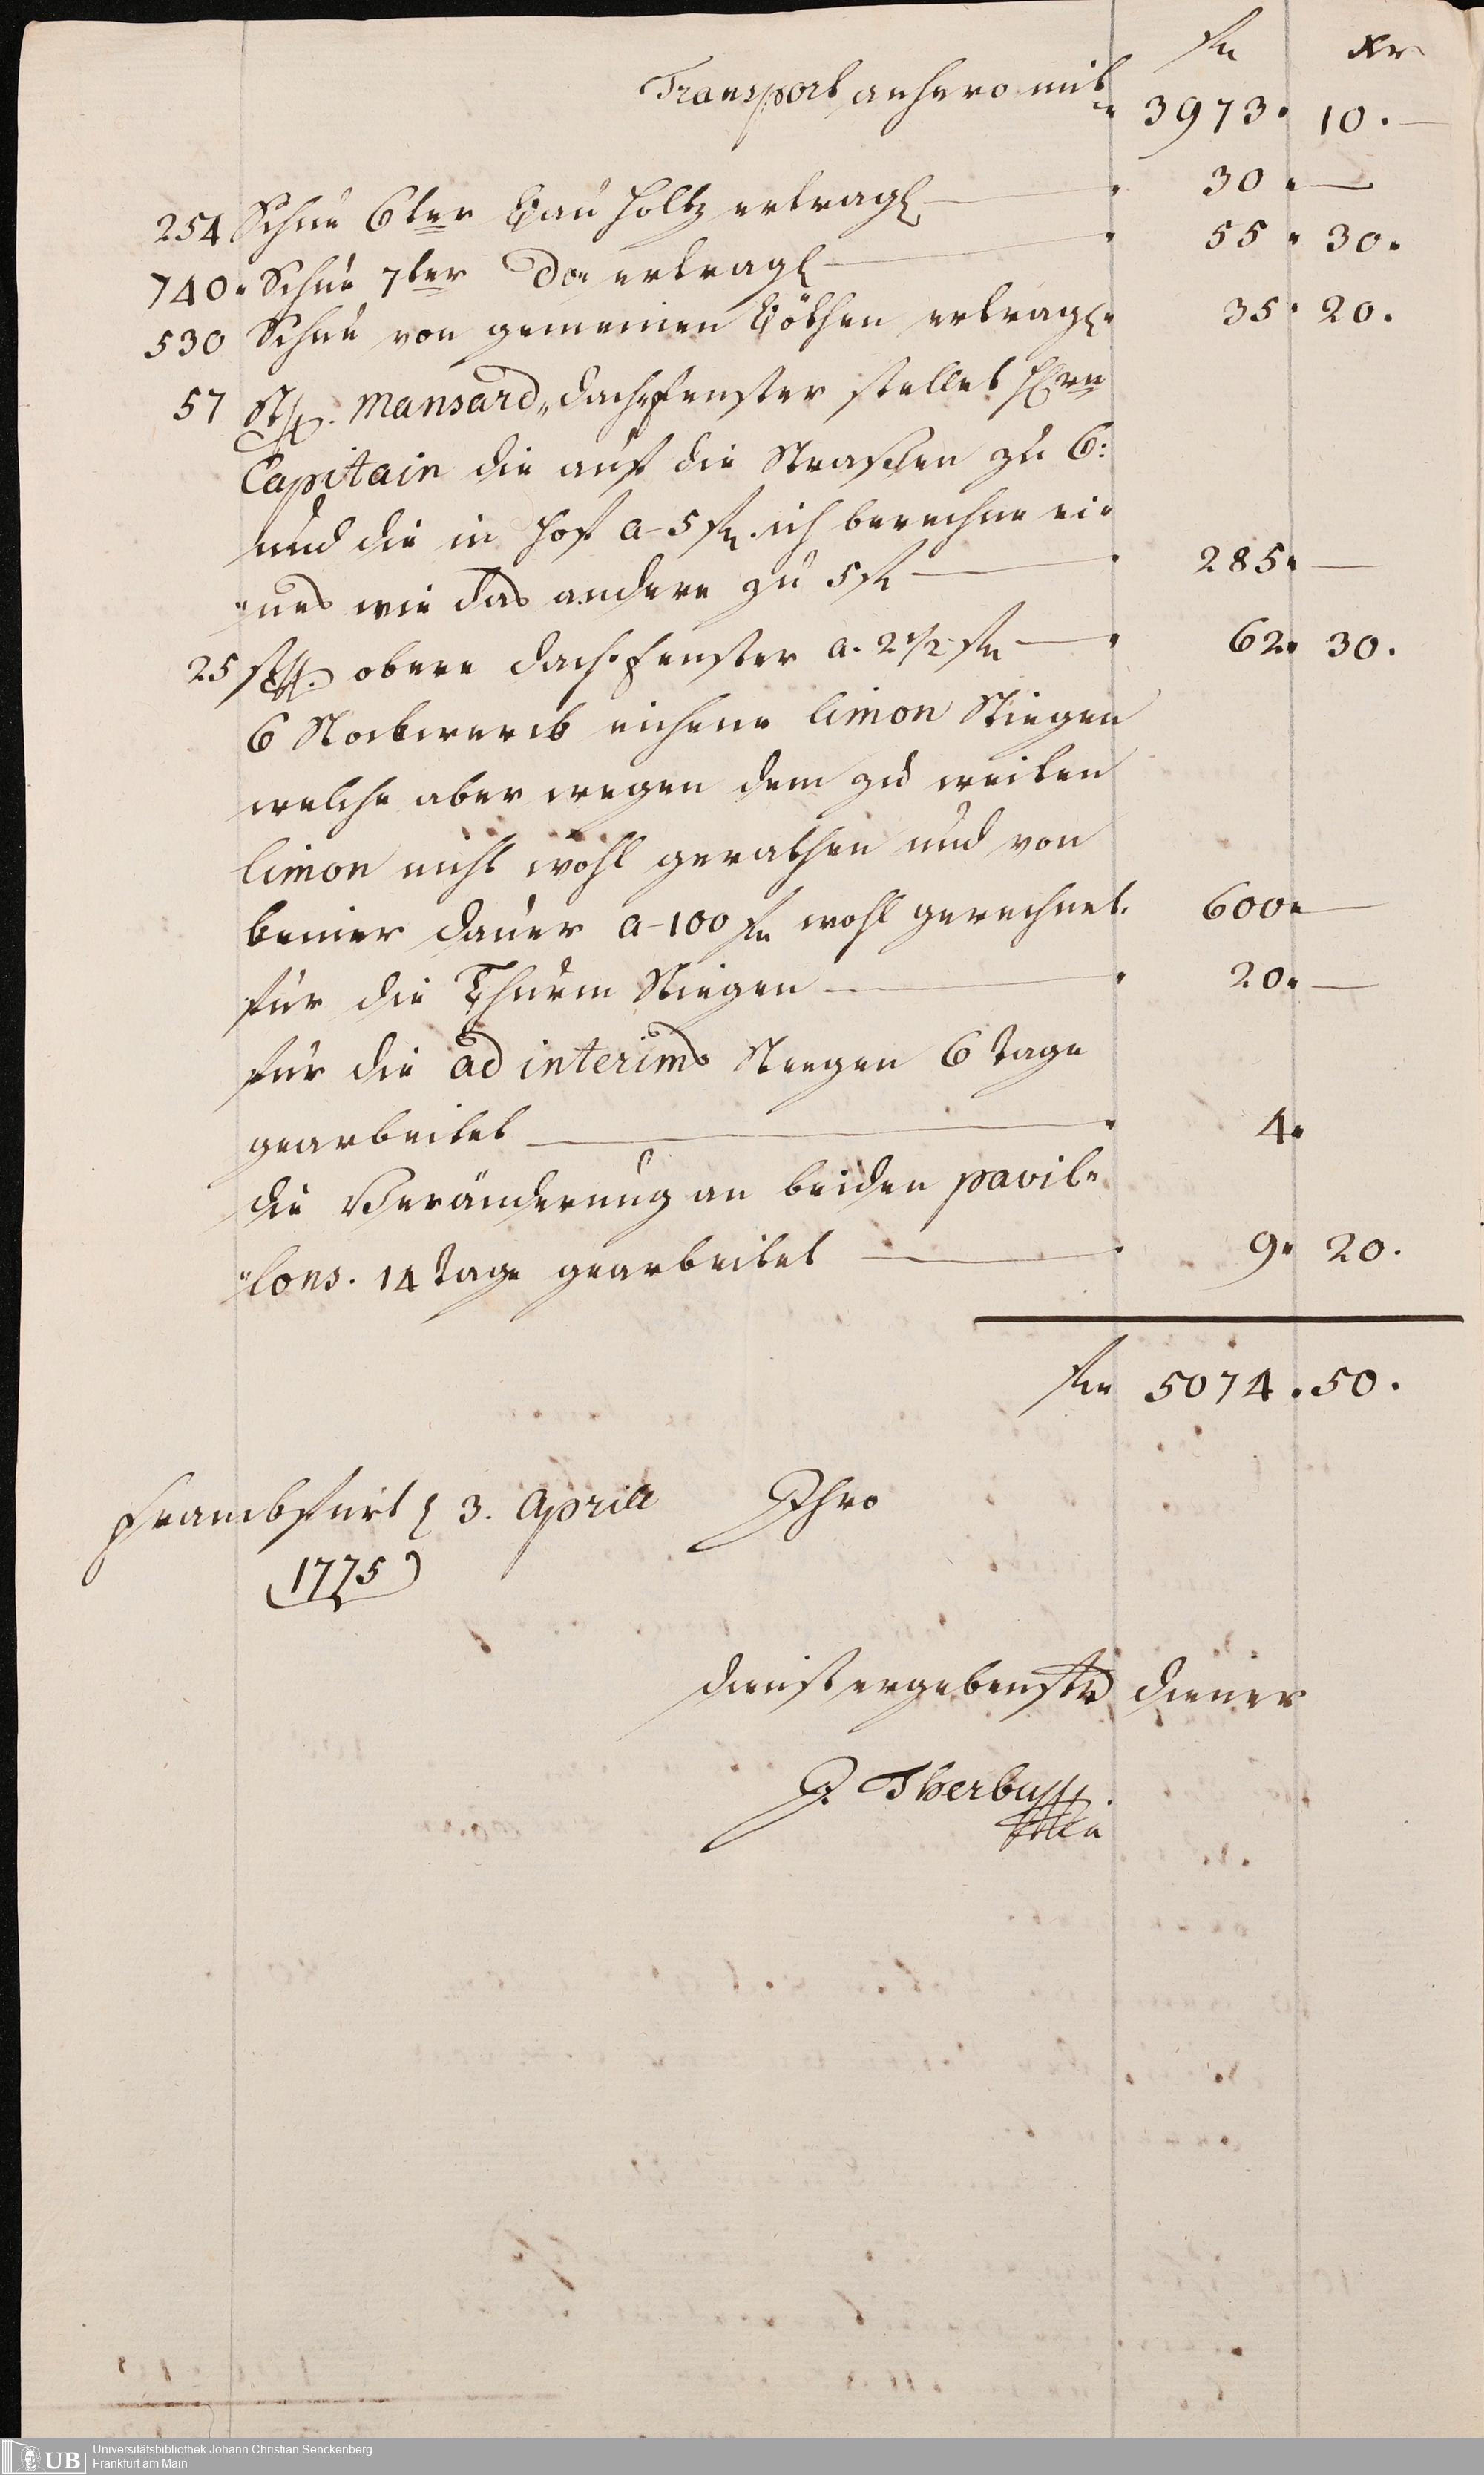 fl Xr
Transport anhero mit 3973. 10.
254 Schue 6ter Bau Holtz ertragl 30. —
740. Schue 7ter Do ertragl 55. 30.
530 Schue von gemeinen Böthen ertragl. 35. 20.
57 St. Mansard, dach Fenster stellet Herrn
Capitain die auf die Strassen zu 6:
und die in Hof a 5 fl. ich berechne ei-
nes wie das andere zu 5 fl 285. —
25 st. obere dach-fenster a. 2 1/2 fl 62. 30.
6 Stockwerck eichene limon Stiegen
welche aber wegen dem zu weiten
limon nicht wohl gerathen und von
keiner dauer a 100 fl wohl gerechnet. 600. —
für die Thurm Stiegen 20. —
für die ad interims Stiegen 6 tage
gearbeitet 4.
die Veränderung an beiden pavil-
lons. 14 tage gearbeitet 9. 20.
fl 5074. 50.
Franckfurt 3. Aprill Ihro
1775
dienst ergebenster diener
G. Therbu
Universitätsbibliothek Johann Christian Senckenberg
UB Frankfurt am Main